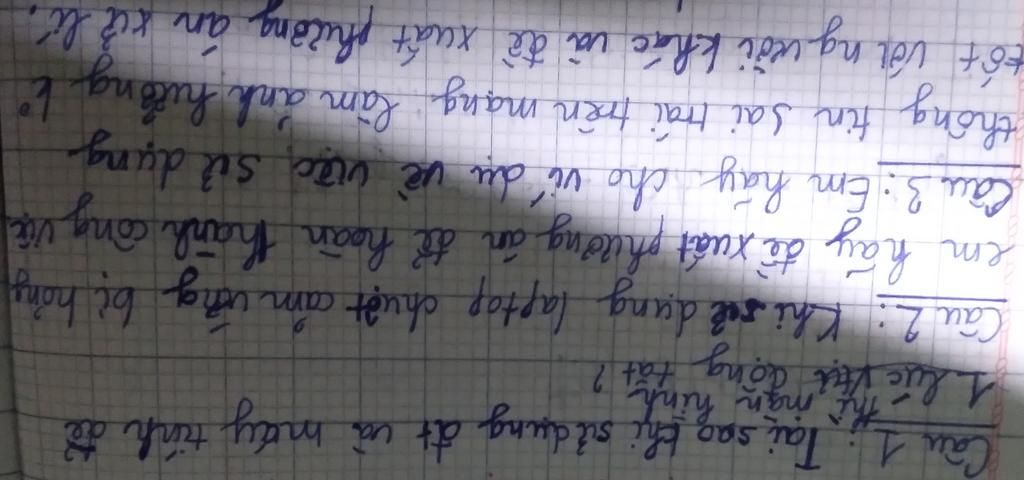 Câu 1: Tại sao khi sử dụng đt và máy tính để
1 lúc thì màn hình tự động tắt?
Câu 2: Khi sử dụng laptop chuột cảm ứng bị hỏng
em hãy đề xuất phương án để hoàn thành công việc
Câu 3: Em hãy cho ví dụ về việc sử dụng
thông tin sai trái trên mạng làm ảnh hưởng k
tốt với người khác và đề xuất phương án xử lí.